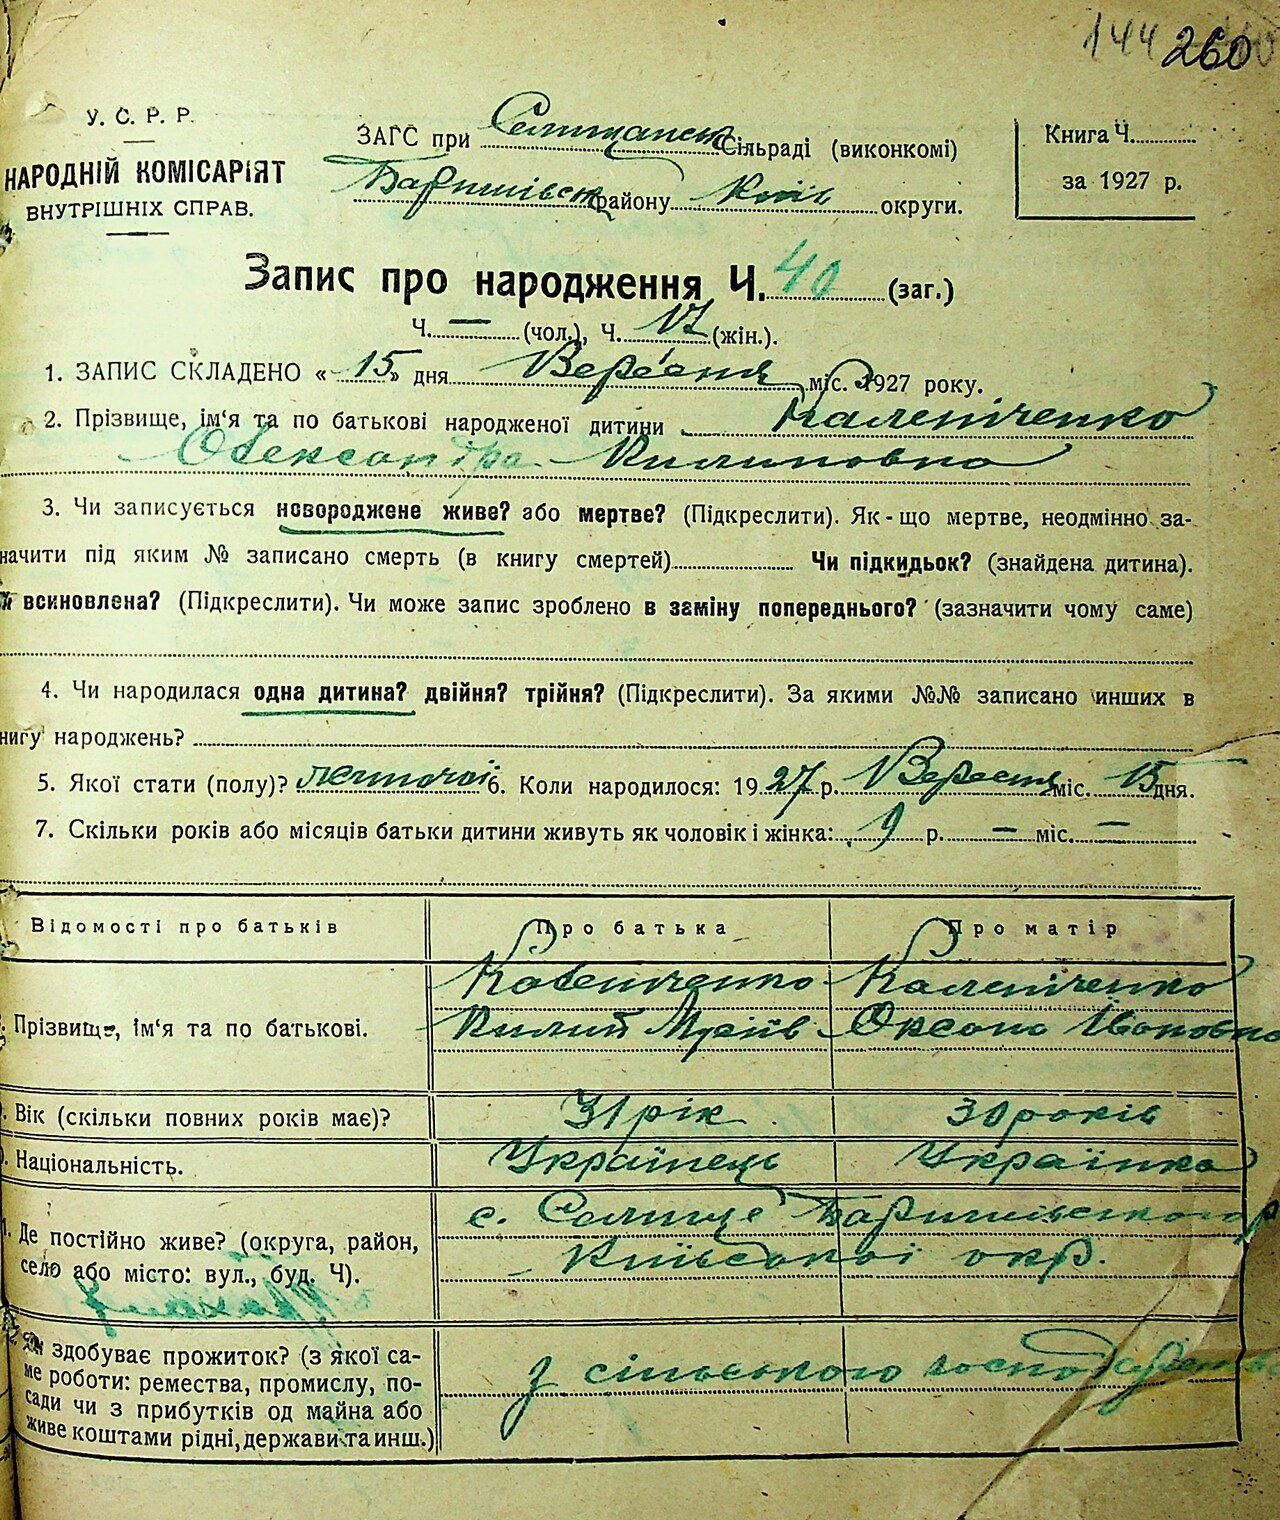 144 260
У. С. Р. Р.
НАРОДНІЙ КОМІСАРІЯТ
ВНУТРІШНІХ СПРАВ.
ЗАГС при Селищанськ Сільраді (виконкомі)
Баришівськ району Київ округи.
Книга Ч.
за 1927 р.
Запис про народження Ч. 40 (заг.)
Ч. — (чол.), Ч. 17 (жін.).
1. ЗАПИС СКЛАДЕНО « 15 » дня Вересня міс. 1927 року.
2. Прізвище, ім‘я та по батькові народженої дитини Каленіченко
Олександра Килиповна
3. Чи записується новороджене живе? або мертве? (Підкреслити). Як-що мертве, неодмінно за-
начити під яким № записано смерть (в книгу смертей) Чи підкидьок? (знайдена дитина).
и всиновлена? (Підкреслити). Чи може запис зроблено в заміну попереднього? (зазначити чому саме)
4. Чи народилася одна дитина? двійня? трійня? (Підкреслити). За якими №№ записано инших в
нигу народжень?
5. Якої стати (полу)? жіночої 6. Коли народилося: 1927 р. Вересня міс. 15 дня.
7. Скільки років або місяців батьки дитини живуть як чоловік і жінка: 9 р. — міс. —
Відомості про батьків Про батька Про матір
Каленіченко Каленіченко
Прізвище, ім‘я та по батькові. Килип Мусіїв Оксана Івановна
Вік (скільки повних років має)? 31 рік 30 років
Національність. Українець Українка
с. Селище Баришівського р
Де постійно живе? (округа, район, Київської окр.
село або місто: вул., буд. Ч).
здобуває прожиток? (з якої са-
ме роботи: ремества, промислу, по- з сільського господарства
сади чи з прибутків од майна або
живе коштами рідні, держави та инш.)